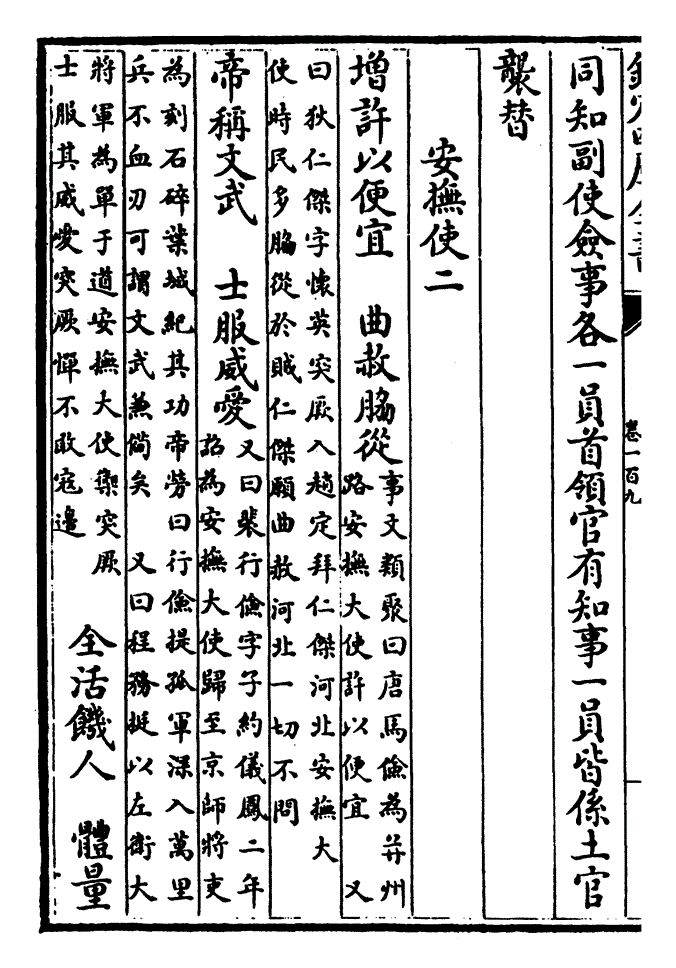 欽定四庫全書
卷一百九
同知副使僉事各一員首領官有知事一員皆係土官
襲替
安撫使二
增許以便宜　曲赦脇從
事文類聚曰唐馬儉為并州
路安撫大使許以便宜　又
曰狄仁傑字懷英突厥入趙定拜仁傑河北安撫大
使時民多脇從於賊仁傑願曲赦河北一切不問
帝稱文武　士服威愛
又曰裴行儉字子約儀鳳二年
詔為安撫大使歸至京師將吏
為刻石碎葉城紀其功帝勞曰行儉提孤軍深入萬里
兵不血刃可謂文武兼備矣　又曰程務挺以左衛大
將軍為單于道安撫大使禦突厥
士服其威愛突厥憚不敢寇邊
全活饑人　體量